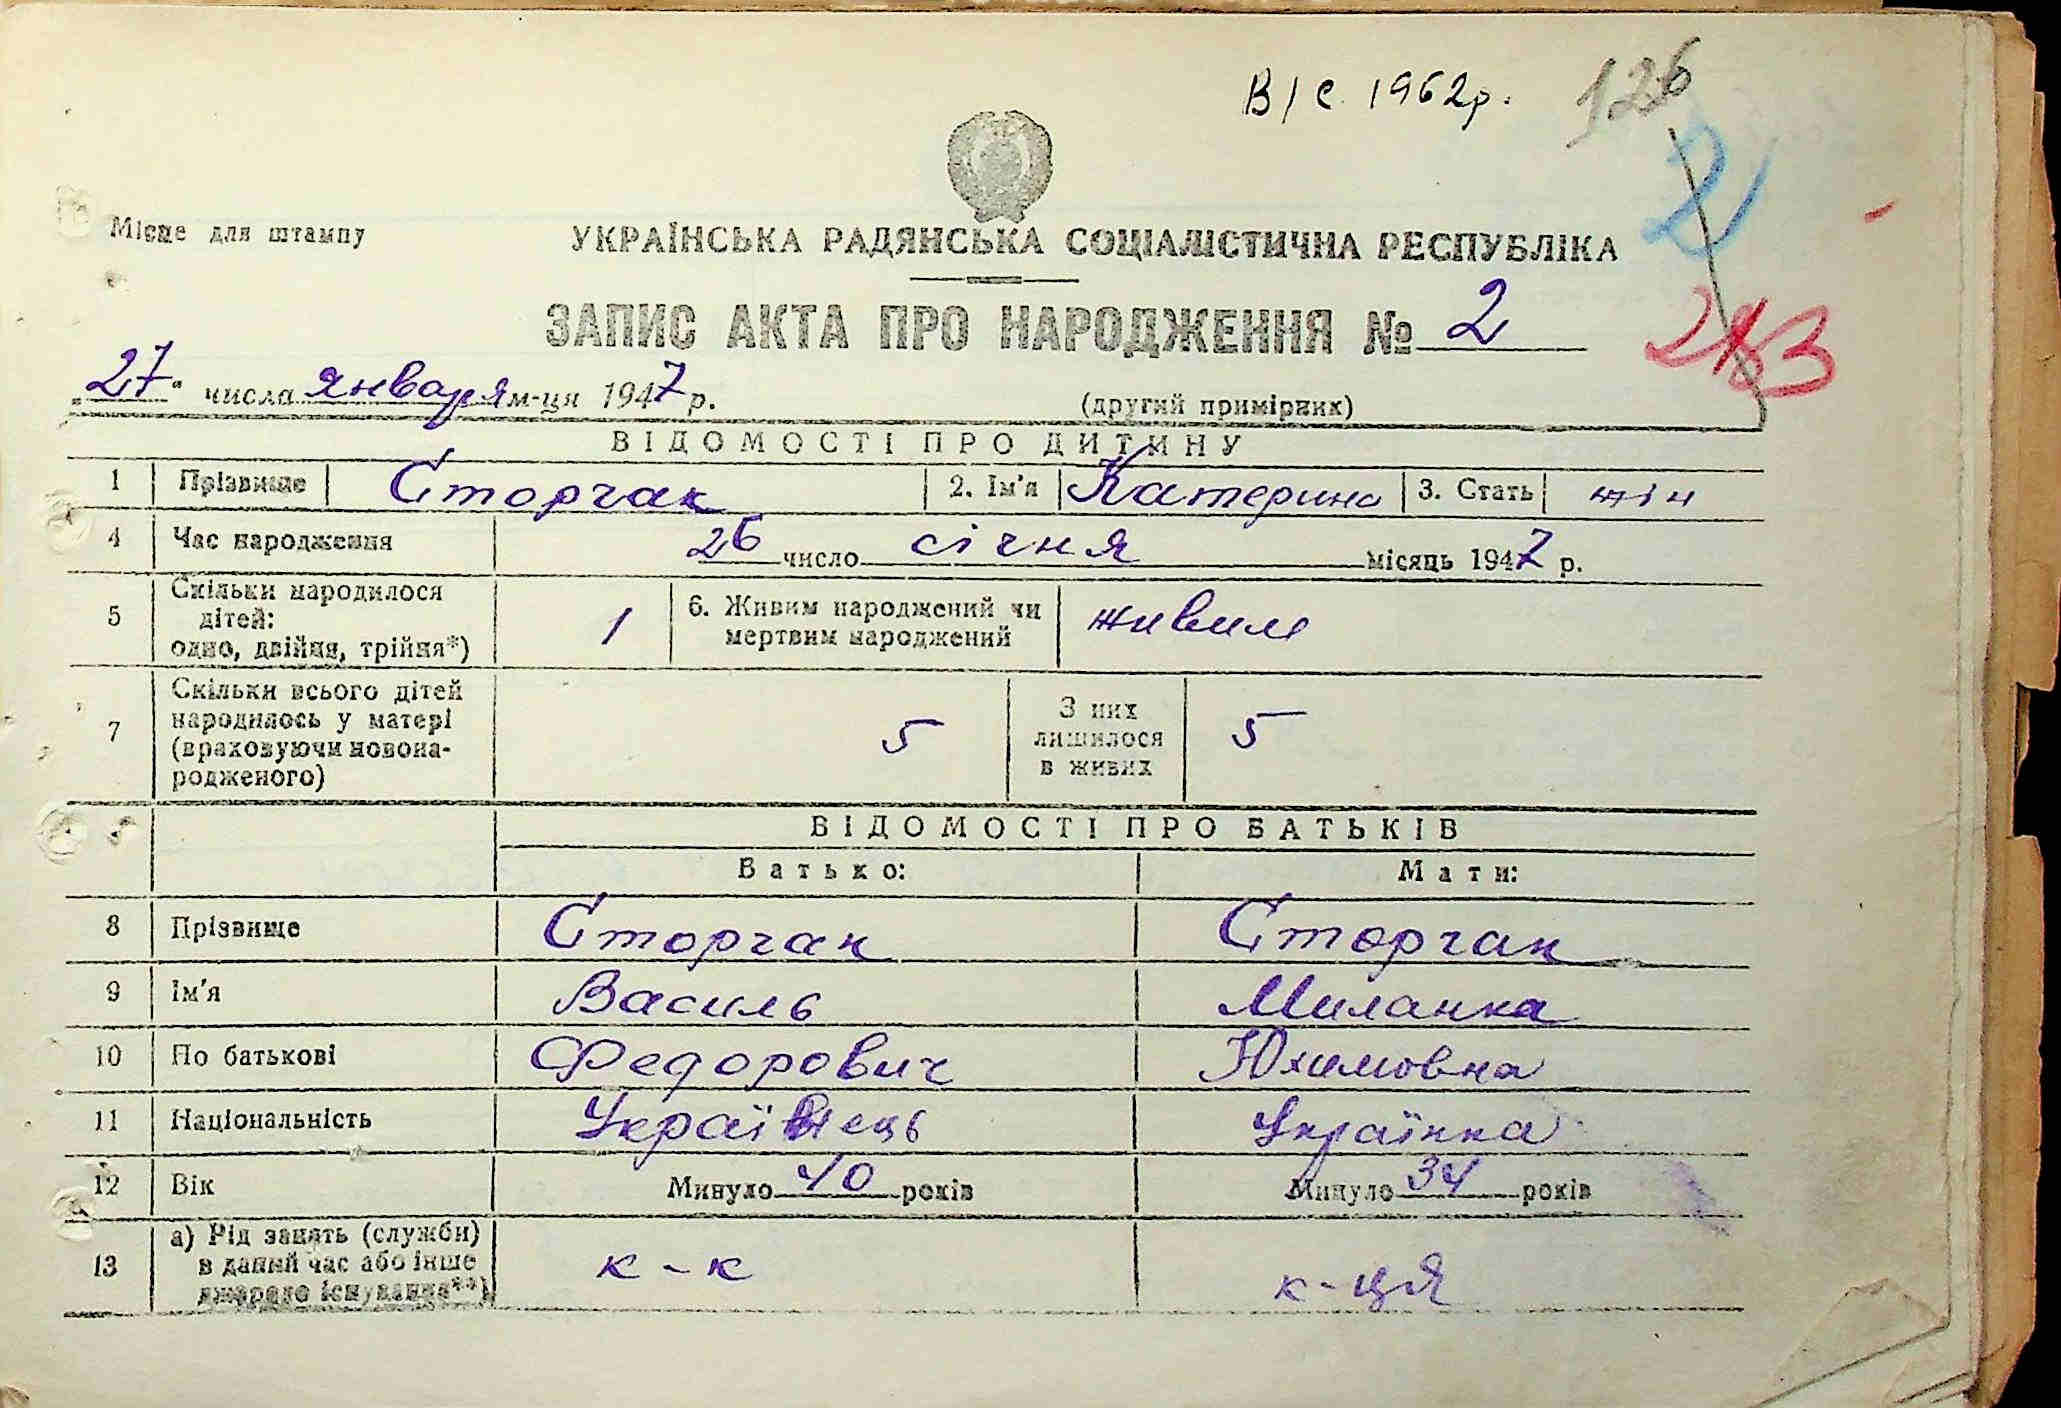 В/с. 1962р. 126
2
Місце для штампу
УКРАЇНСЬКА РАДЯНСЬКА СОЦІАЛІСТИЧНА РЕСПУБЛІКА
ЗАПИС АКТА ПРО НАРОДЖЕННЯ № 2
„27“ числа января м-ця 1947 р.
(другий примірник)
ВІДОМОСТІ ПРО ДИТИНУ
1 Прізвище Сторчак 2. Ім'я Катерина 3. Стать жін
4 Час народження 26 число січня місяць 1947 р.
5 Скільки народилося дітей: одно, двійня, трійня*) 1 6. Живим народжений чи мертвим народжений живим
7 Скільки всього дітей народилось у матері (враховуючи новонародженого) 5 З них лишилося в живих 5
ВІДОМОСТІ ПРО БАТЬКІВ
Батько: Мати:
8 Прізвище Сторчак Сторчак
9 Ім'я Василь Миланка
10 По батькові Федорович Юхимовна
11 Національність Українець Українка
12 Вік Минуло 40 років Минуло 34 років
13 а) Рід занять (служби) в даний час або інше джерело існування**) к-к к-ця